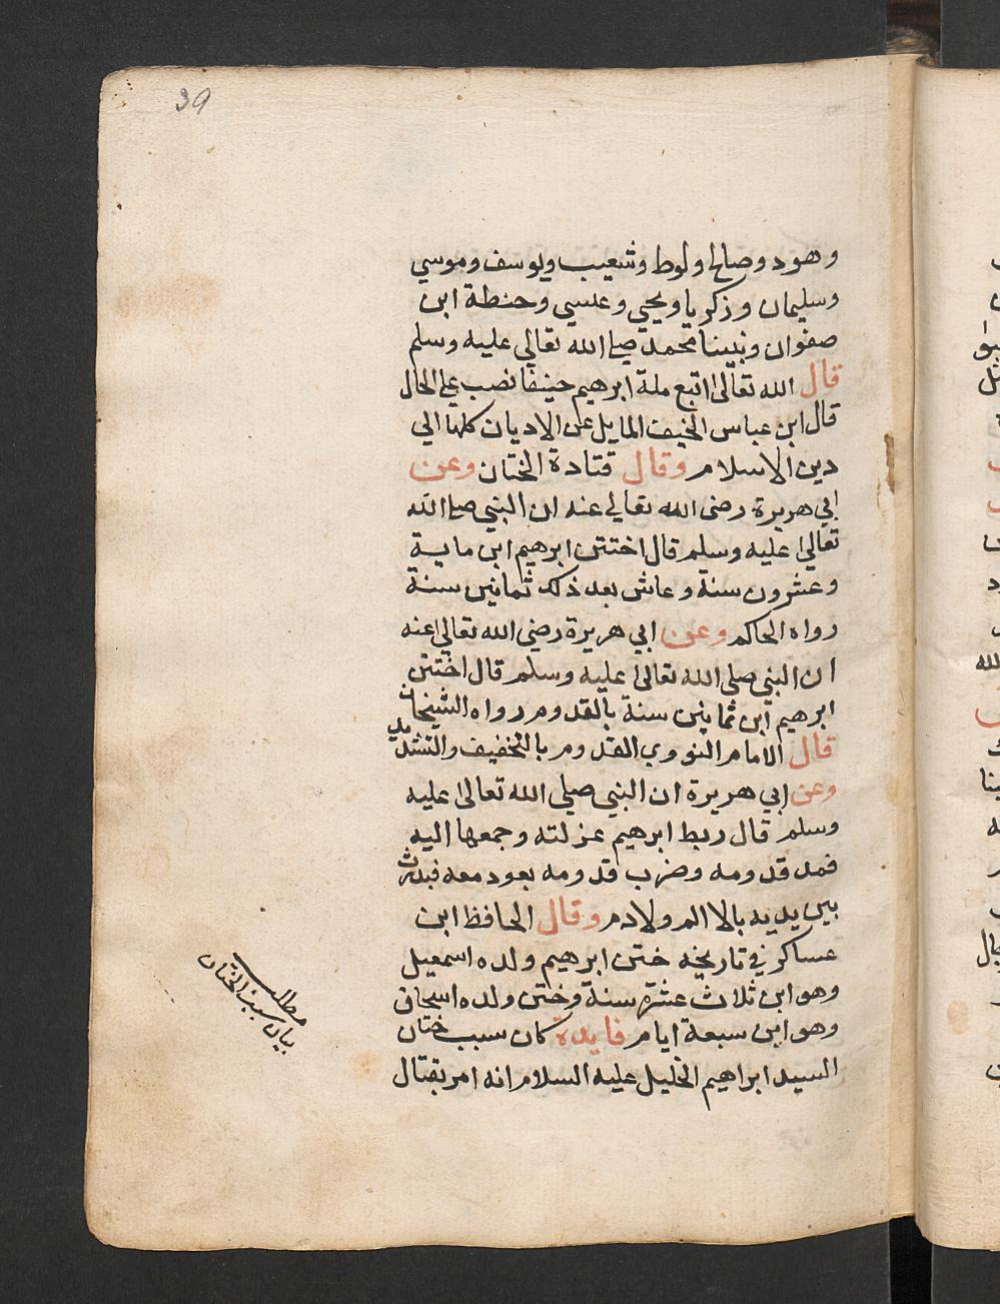 39
وهود وصالح ولوط وشعيب ويوسف وموسي
وسليمان وزكريا ويحي وعيسي وحنطة ابن
صفوان ونبينا محمد صلى الله تعالي عليه وسلم
قال الله تعالى اتبع ملة ابرهيم حنيفا نصب على الحال
قال ابن عباس الحنيف المايل عن الاديان كلها الي
دين الاسلام وقال قتادة الختان وعن
ابي هريرة رضى الله تعالي عنه ان النبي صلى الله
تعالى عليه وسلم قال اختتن ابرهيم ابن ماية
وعشرون سنة وعاش بعد ذلك ثمانين سنة
رواه الحاكم وعن ابي هريرة رضي الله تعالى عنه
ان النبي صلى الله تعالى عليه وسلم قال اختتن
ابرهيم ابن ثمانين سنة بالقدوم رواه الشيخان
قال الامام النووي القدوم بالتخفيف والتشديد
وعن ابي هريرة ان النبي صلي الله تعالى عليه
وسلم قال ربط ابرهيم عزلته وجمعها اليه
فمد قدومه وضرب قدومه بعود معه فبدرت
بين يديه بالا الم ولا دم وقال الحافظ ابن
عساكر في تاريخه ختن ابرهيم ولده اسمعيل
وهو ابن ثلاث عشرة سنة وختن ولده اسحاق
وهو ابن سبعة ايام فايدة كان سبب ختان
السيد ابراهيم الخليل عليه السلام انه امر بقتال
مطلب
بيان سبب الختان